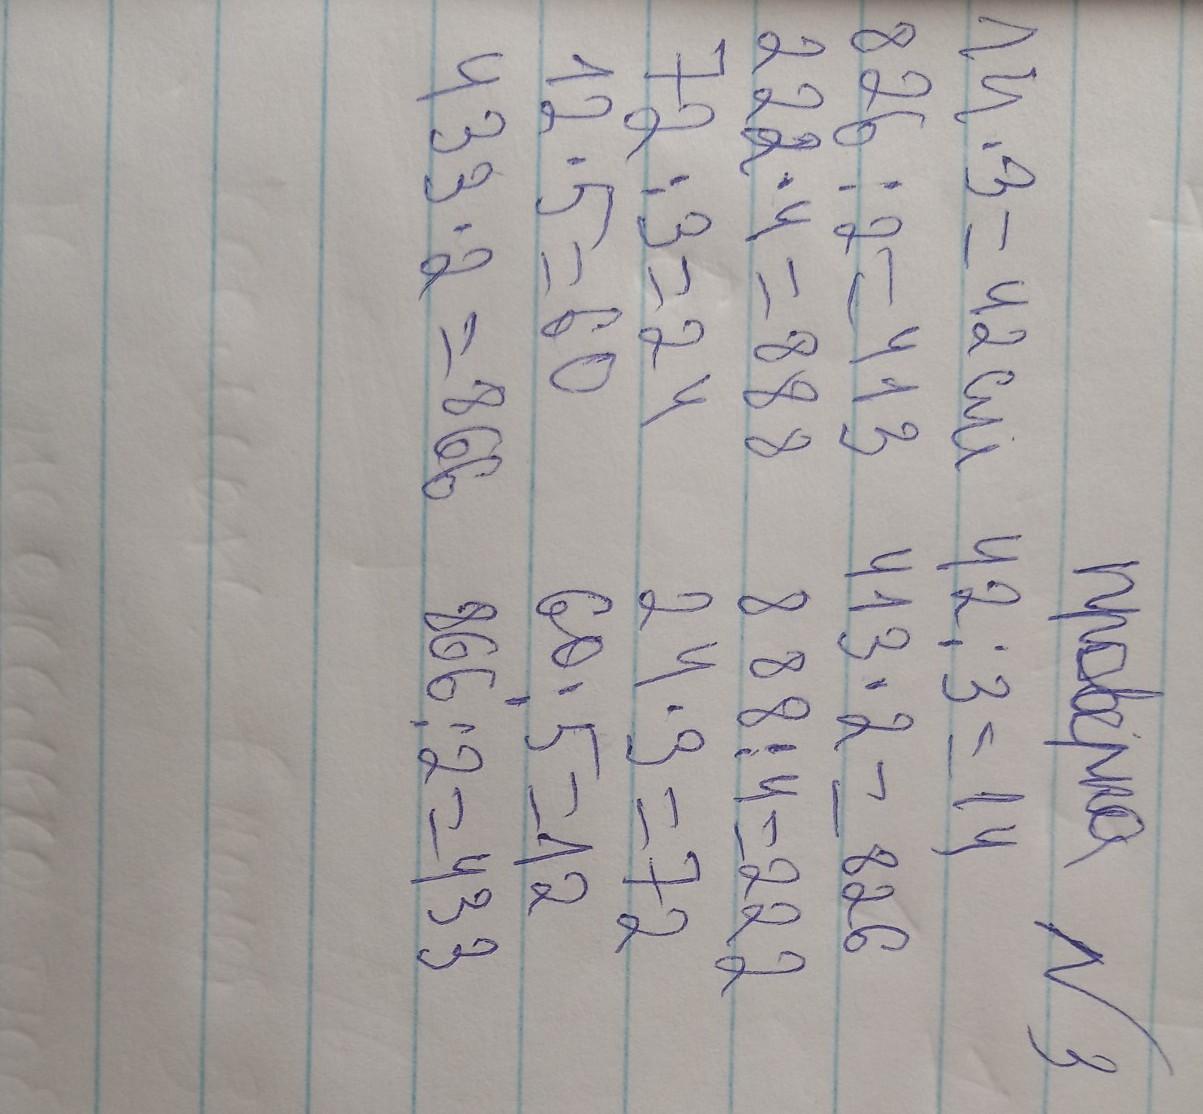 проверка √3
14 · 3 = 42 см 42 : 3 = 14
826 : 2 = 413 413 · 2 = 826
222 · 4 = 888 888 : 4 = 222
72 : 3 = 24 24 · 3 = 72
12 · 5 = 60 60 : 5 = 12
433 · 2 = 866 866 : 2 = 433